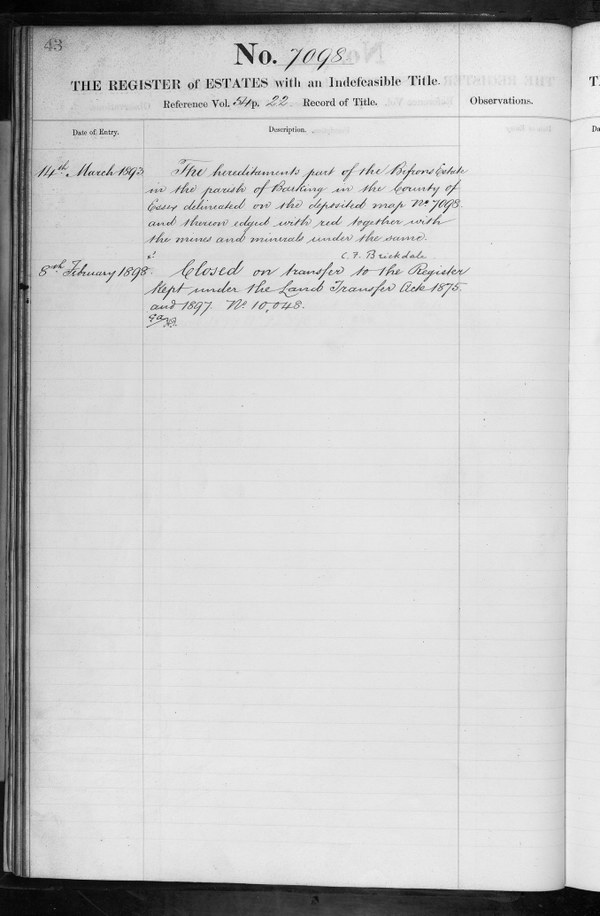 43
No. 7098
THE REGISTER of ESTATES with an Indefeasible Title.
Reference Vol. 54 p. 22 Record of Title.
Observations.
Date of Entry.
Description.
14th March 1893
The hereditaments part of the Bifrons Estate
in the parish of Barking in the County of
Essex delineated on the deposited map No 7098
and thereon edged with red together with
the mines and minerals under the same.
C. F. Brickdale
8th February 1898.
Closed on transfer to the Register
kept under the Land Transfer Acts 1875
and 1897. No 10,048.